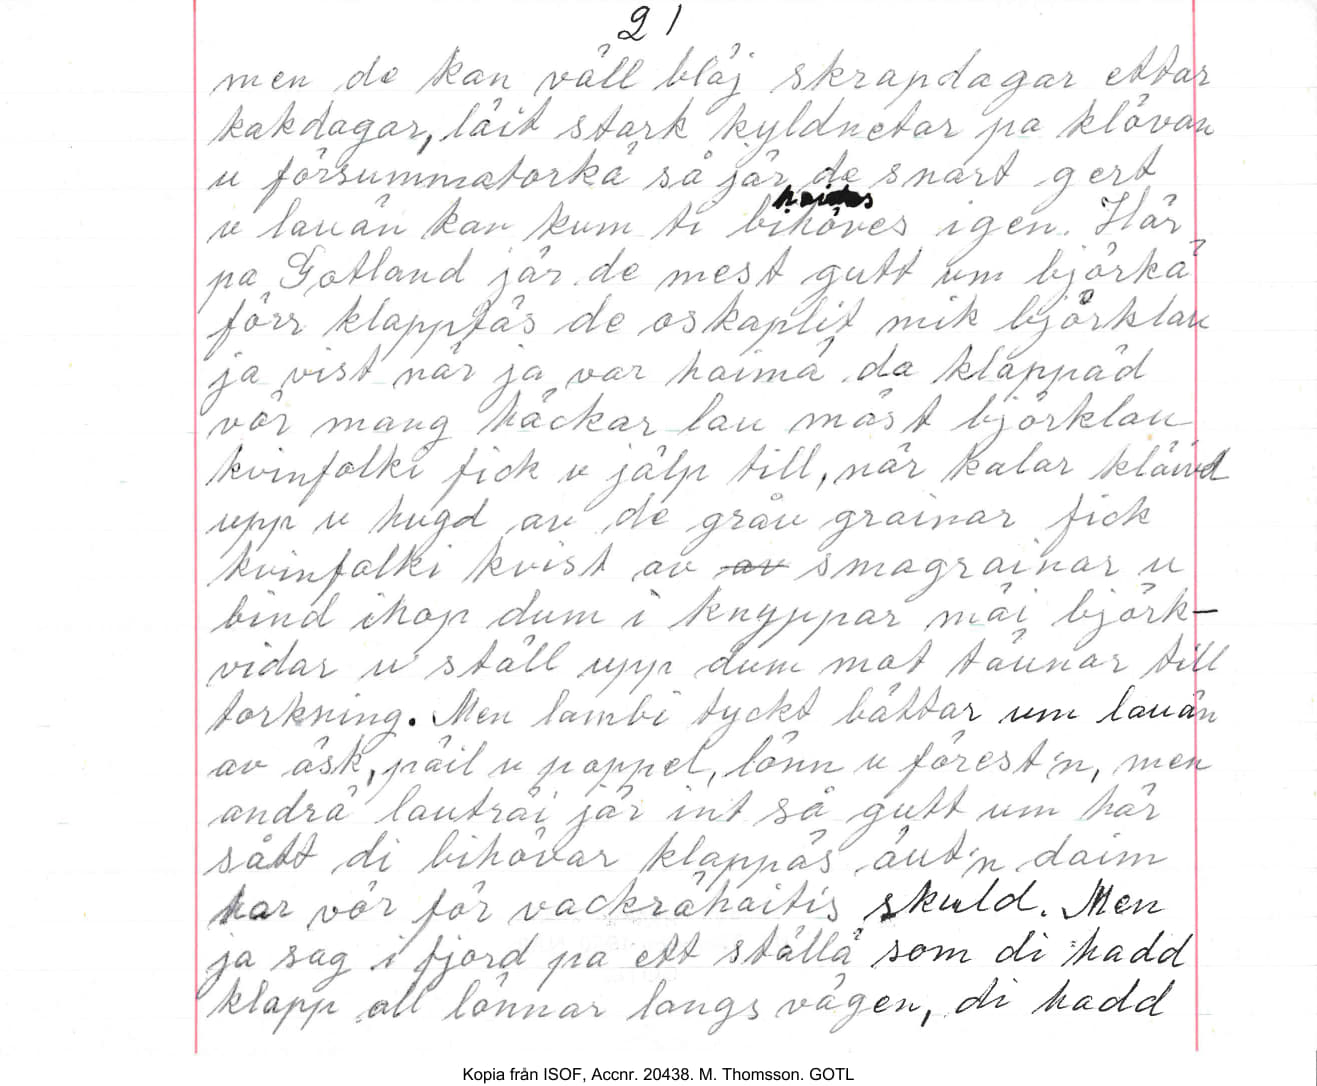 21
men de kan väll bläj skrapdagar ettar
kakdagar, läit stark kyldnetar pa klövan
u försummatorkä så jär de snart gert
u lauän kan kum ti bihöves igen. Här
pa Gotland jär de mest gutt um björkä
förr klapptäs de oskaplit mik björklau
ja vist när ja var haimä da kläppäd
vör mang häckar lau mäst björklau
kvinfolki fick u jälp till, när kalar kläivd
upp u hugd av de gråu grainar fick
kvinfolki kvist av av smagrainar u
bind ihop dum i knyppar mäi björk-
vidar u ställ upp dum mot täunar till
torkning. Men lambi tyckt bättar um lauän
av äsk, päil u poppel, lönn u förest'n, men
andrä lauträi jär int så gutt um här
sått di bihövar klappäs äut'n daim
har vör för vackrähaitis skuld. Men
ja sag i fjord pa ett ställä som di hadd
klapp all lönnar langs vägen, di hadd
Kopia från ISOF, Accnr. 20438. M. Thomsson. GOTL